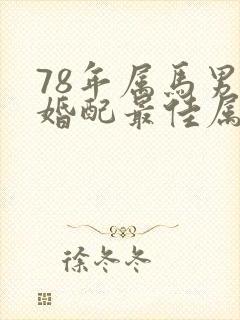 78年属马男
婚配最佳属
徐冬冬